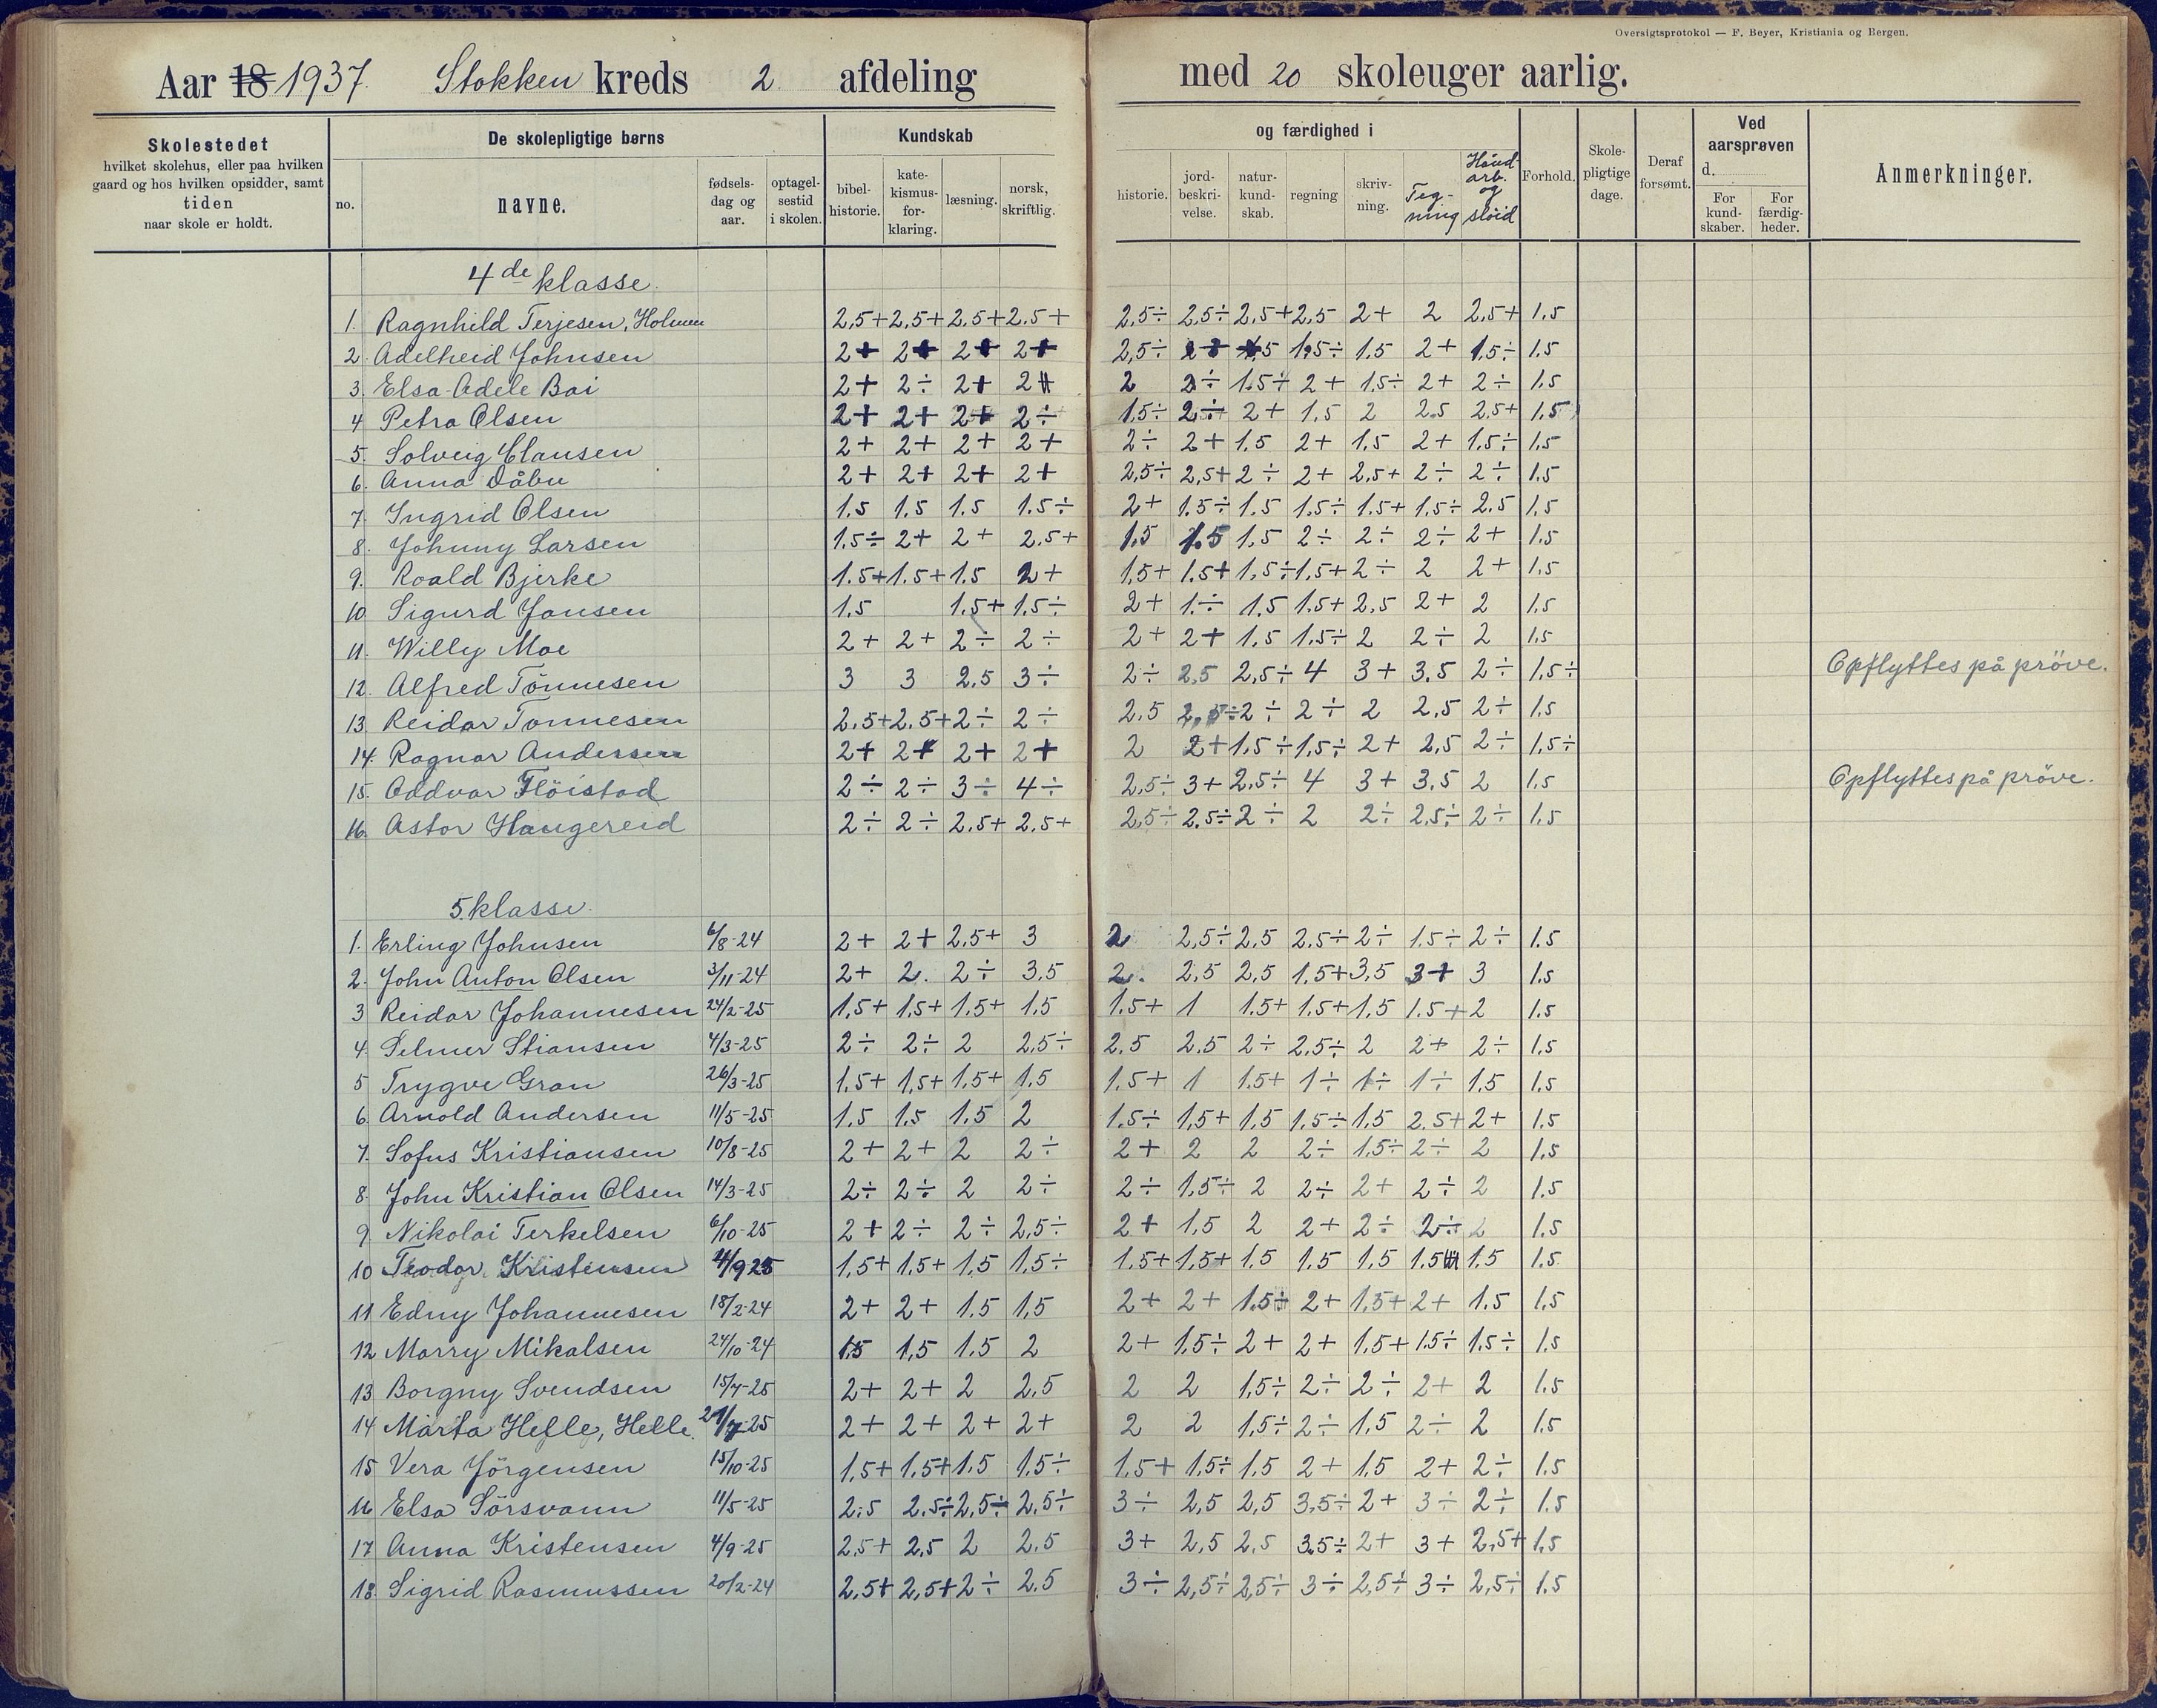 Oversigtsprotokol — F. Beyer, Kristiania og Bergen.
Aar 18 1937. Stokken kreds 2 afdeling med 20 skoleuger aarlig.
Skolestedet
hvilket skolehus, eller paa hvilken
gaard og hos hvilken opsidder, samt
tiden
naar skole er holdt.
De skolepligtige børns
no.
navne.
fødsels-
dag og
aar.
optagel-
sestid
i skolen.
Kundskab
bibel-
historie.
kate-
kismus-
for-
klaring.
læsning.
norsk,
skriftlig.
og færdighed i
historie.
jord-
beskri-
velse.
natur-
kund-
skab.
regning
skriv-
ning.
Teg-
ning
Haand-
arb.
og
sløid
Forhold.
Skole-
pligtige
dage.
Deraf
forsømt.
Ved
aarsprøven
d.
For
kund-
skaber.
For
færdig-
heder.
Anmerkninger.
4de klasse.
1. Ragnhild Terjesen, Holmen 2,5+ 2,5+ 2,5+ 2,5+ 2,5÷ 2,5÷ 2,5+ 2,5 2+ 2 2,5+ 1,5
2. Adelheid Johnsen 2+ 2+ 2+ 2+ 2,5÷ 1,5÷ 1,5 2+ 1,5÷ 1,5
3. Elsa Adele Boi 2+ 2÷ 2+ 2 2 2÷ 1,5÷ 2+ 1,5÷ 2+ 2÷ 1,5
4. Petra Olsen 2+ 2+ 2+ 2÷ 1,5÷ 2÷ 2+ 1,5 2 2,5 2,5+ 1,5
5. Solveig Clausen 2+ 2+ 2+ 2+ 2÷ 2+ 1,5 2+ 1,5 2+ 1,5÷ 1,5
6. Anna Dåbu 2+ 2+ 2+ 2+ 2,5÷ 2,5+ 2÷ 2+ 2,5+ 2÷ 2÷ 1,5
7. Ingrid Olsen 1,5 1,5 1,5 1,5÷ 2+ 1,5÷ 1,5 1,5÷ 1,5+ 1,5÷ 2,5 1,5
8. Johnny Larsen 1,5÷ 2+ 2+ 2,5+ 1,5 1,5 1,5 2÷ 2÷ 2÷ 2+ 1,5
9. Roald Bjerke 1,5+ 1,5+ 1,5 2+ 1,5+ 1,5+ 1,5÷ 1,5+ 2÷ 2 2+ 1,5
10. Sigurd Jansen 1,5 1,5+ 1,5÷ 2+ 1÷ 1,5 1,5+ 2,5 2+ 2 1,5
11. Willy Moe 2+ 2+ 2÷ 2÷ 2+ 2+ 1,5 1,5÷ 2 2÷ 2 1,5
12. Alfred Tönnesen 3 3 2,5 3÷ 2÷ 2,5 2,5÷ 4 3+ 3,5 2÷ 1,5÷ Opflyttes på pröve.
13. Reidar Tonnesen 2,5+ 2,5+ 2÷ 2÷ 2,5 2,5÷ 2÷ 2÷ 2 2,5 2÷ 1,5
14. Ragnar Andersen 2+ 2+ 2+ 2+ 2 2+ 1,5÷ 1,5÷ 2+ 2,5 2÷ 1,5÷
15. Oddvar Flöistad 2÷ 2÷ 3÷ 4÷ 2,5÷ 3+ 2,5÷ 4 3+ 3,5 2 1,5 Opflyttes på pröve.
16. Astor Haugereid 2÷ 2÷ 2,5+ 2,5+ 2,5÷ 2,5÷ 2÷ 2 2÷ 2,5÷ 2÷ 1,5
5. klasse.
1. Erling Johnsen 6/8-24 2+ 2+ 2,5+ 3 2 2,5÷ 2,5 2,5÷ 2÷ 1,5÷ 2÷ 1,5
2. John Anton Olsen 3/11-24 2+ 2. 2÷ 3,5 2. 2,5 2,5 1,5+ 3,5 3+ 3 1,5
3 Reidar Johannesen 24/2-25 1,5+ 1,5+ 1,5+ 1,5 1,5+ 1 1,5+ 1,5+ 1,5 1,5+ 2 1,5
4. Selmer Stiansen 4/3-25 2÷ 2÷ 2 2,5÷ 2,5 2,5 2÷ 2,5÷ 2 2+ 2÷ 1,5
5 Trygve Gran 26/3-25 1,5+ 1,5+ 1,5+ 1,5 1,5+ 1 1,5+ 1÷ 1÷ 1÷ 1,5 1,5
6. Arnold Andersen 11/5-25 1,5 1,5 1,5 2 1,5÷ 1,5+ 1,5 1,5÷ 1,5 2,5+ 2+ 1,5
7. Sofus Kristiansen 10/8-25 2+ 2+ 2 2÷ 2+ 2 2 2÷ 1,5÷ 2÷ 2 1,5
8. John Kristian Olsen 14/3-25 2÷ 2÷ 2 2÷ 2÷ 1,5÷ 2 2÷ 2+ 2÷ 2 1,5
9. Nikolai Terkelsen 6/10-25 2+ 2÷ 2÷ 2,5÷ 2+ 1,5 2 2+ 2÷ 2÷ 2 1,5
10 Teodor Kristensen 4/9 25 1,5+ 1,5+ 1,5 1,5÷ 1,5+ 1,5+ 1,5 1,5 1,5 1,5 1,5 1,5
11 Edny Johannesen 18/2-24 2+ 2+ 1,5 1,5 2+ 2+ 1,5÷ 2+ 1,5+ 2+ 1,5 1,5
12 Marry Mikalsen 24/10-24 1,5 1,5 1,5 2 2+ 1,5÷ 2+ 2+ 1,5+ 1,5÷ 1,5÷ 1,5
13 Borgny Svendsen 15/7-25 2+ 2+ 2 2,5 2 2 1,5÷ 2÷ 2÷ 2+ 2 1,5
14 Marta Helle, Helle. 21/7 25 2+ 2+ 2+ 2+ 2 2 1,5÷ 2÷ 1,5 2÷ 2 1,5
15 Vera Jörgensen 15/10-25 1,5+ 1,5+ 1,5 1,5÷ 1,5+ 1,5÷ 1,5 2+ 1,5 2+ 2÷ 1,5
16 Elsa Sörsvann 11/5-25 2,5 2,5÷ 2,5÷ 2,5÷ 3÷ 2,5 2,5 3,5÷ 2+ 3÷ 2÷ 1,5
17 Anna Kristensen 4/9-25 2,5+ 2,5 2 2,5 3+ 2,5 2,5 3,5÷ 2+ 3+ 2,5+ 1,5
18. Sigrid Rasmussen 20/2-24 2,5+ 2,5+ 2÷ 2,5 3÷ 2,5÷ 2,5÷ 3÷ 2,5÷ 3÷ 2,5÷ 1,5